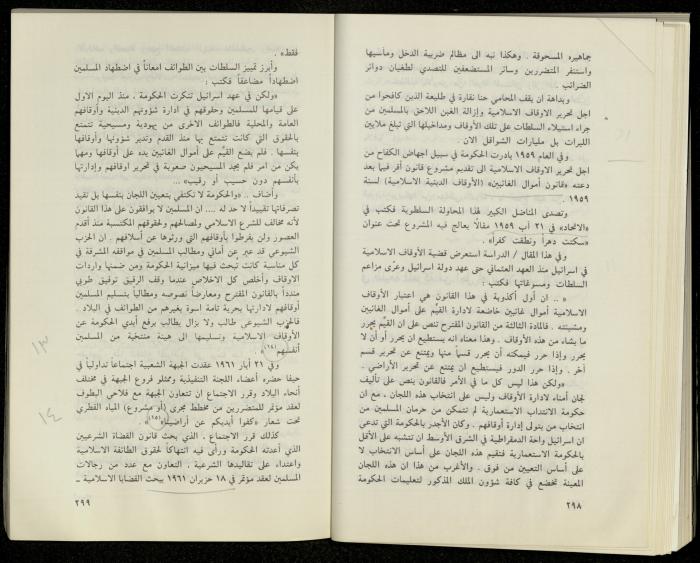 جماهيره المسحوقة . وهكذا نبه الى مظالم ضريبة الدخل ومآسيها
واستنفر المتضررين وسائر المستضعفين للتصدي لطغيان دوائر
الضرائب .
وبداهة ان يقف المحامي حنا نقارة في طليعة الذين كافحوا من
اجل تحرير الاوقاف الاسلامية وإزالة الغبن اللاحق بالمسلمين من
جراء استيلاء السلطات على تلك الأوقاف ومداخيلها التي تبلغ ملايين
الليرات بل مليارات الشواقل الان .
وفي العام ١٩٥٩ بادرت الحكومة في سبيل اجهاض الكفاح من
اجل تحرير الاوقاف الاسلامية الى تقديم مشروع قانون أقر فيما بعد
دعته «قانون أموال الغائبين» (الأوقاف الدينية الاسلامية) لسنة
١٩٥٩ .
وتصدى المناضل الكبير لهذه المحاولة السلطوية فكتب في
«الاتحاد» في ٢١ آب ١٩٥٩ مقالاً يعالج فيه المشروع تحت عنوان
«سكتت دهراً ونطقت كفراً» .
وفي هذا المقال / الدراسة استعرض قضية الأوقاف الاسلامية
في اسرائيل منذ العهد العثماني حتى عهد دولة اسرائيل وعرّى مزاعم
السلطات ومسوغاتها فكتب :
« .. ان أول أكذوبة في هذا القانون هي اعتبار الأوقاف
الاسلامية أموال غائبين خاضعة لادارة القيّم على أموال الغائبين
ومشيئته . فالمادة الثالثة من القانون المقترح تنص على ان القيّم يحرر
ما يشاء من هذه الأوقاف . وهذا معناه انه يستطيع ان يحرر أو أن لا
يحرر وإذا حرر فيمكنه أن يحرر قسماً منها ويمتنع عن تحرير قسم
آخر . وإذا حرر الدور فيستطيع ان يمتنع عن تحرير الأراضي .
«ولكن هذا ليس كل ما في الأمر فالقانون ينص على تأليف
لجان أمناء لادارة الأوقاف وليس على انتخاب هذه اللجان ، مع ان
حكومة الانتداب الاستعمارية لم تتمكن من حرمان المسلمين من
انتخاب من يتولى إدارة أوقافهم . وكان الأجدر بالحكومة التي تدعي
ان اسرائيل واحة الدمقراطية في الشرق الأوسط ان تتشبه على الأقل
بالحكومة الاستعمارية فتقيم هذه اللجان على أساس الانتخاب لا
على أساس التعيين من فوق . والأغرب من هذا ان هذه اللجان
المعينة تخضع في كافة شؤون الملك المذكور لتعليمات الحكومة
٢٩٨
فقط» .
وأبرز تمييز السلطات بين الطوائف امعاناً في اضطهاد المسلمين
اضطهاداً مضاعفاً فكتب :
«ولكن في عهد اسرائيل تنكرت الحكومة ، منذ اليوم الاول
على قيامها للمسلمين وحقوقهم في ادارة شؤونهم الدينية وأوقافهم
العامة والمحلية فالطوائف الاخرى من يهودية ومسيحية تتمتع
بالحقوق التي كانت تتمتع بها منذ القدم وتدير شؤونها وأوقافها
بنفسها . فلم يضع القيّم على أموال الغائبين يده على أوقافها ومهما
يكن من امر فلم يجد المسيحيون صعوبة في تحرير اوقافهم وإدارتها
بأنفسهم دون حسيب أو رقيب» ...
وأضاف .. «والحكومة لا تكتفي بتعيين اللجان بنفسها بل تقيد
تصرفاتها تقييداً لا حد له .... ان المسلمين لا يوافقون على هذا القانون
لأنه مخالف للشرع الاسلامي ولمصالحهم وحقوقهم المكتسبة منذ أقدم
العصور ولن يفرطوا بأوقافهم التي ورثوها عن أسلافهم . ان الحزب
الشيوعي قد عبر عن أماني ومطالب المسلمين في مواقفه المشرفة في
كل مناسبة كانت تبحث فيها ميزانية الحكومة ومن ضمنها واردات
الاوقاف وأخلص كل الاخلاص عندما وقف الرفيق توفيق طوبي
مندداً بالقانون المقترح ومعارضاً نصوصه ومطالباً بتسليم المسلمين
أوقافهم لادارتها بحرية تامة اسوة بغيرهم من الطوائف في البلاد .
فالحزب الشيوعي طالب ولا يزال يطالب برفع أيدي الحكومة عن
الأوقاف الاسلامية وتسليمها الى هيئة منتخبة من المسلمين
أنفسهم»(١٤) .
وفي ٢١ أيار ١٩٦١ عقدت الجبهة الشعبية اجتماعاً تداولياً في
حيفا حضره أعضاء اللجنة التنفيذية وممثلو فروع الجبهة في مختلف
أنحاء البلاد وقرر الاجتماع ان تتعاون الجبهة مع فلاحي البطوف
لعقد مؤتمر للمتضررين من مخطط مجرى (أو مشروع) المياه القطري
تحت شعار «كفوا أيديكم عن أراضينا»(١٥) .
كذلك قرر الاجتماع ، الذي بحث قانون القضاة الشرعيين
الذي أعدته الحكومة ورأى فيه انتهاكاً لحقوق الطائفة الاسلامية
واعتداء على تقاليدها الشرعية ، التعاون مع عدد من رجالات
المسلمين لعقد مؤتمر في ١٨ حزيران ١٩٦١ يبحث القضايا الاسلامية ـ
٢٩٩
١٣
١٤